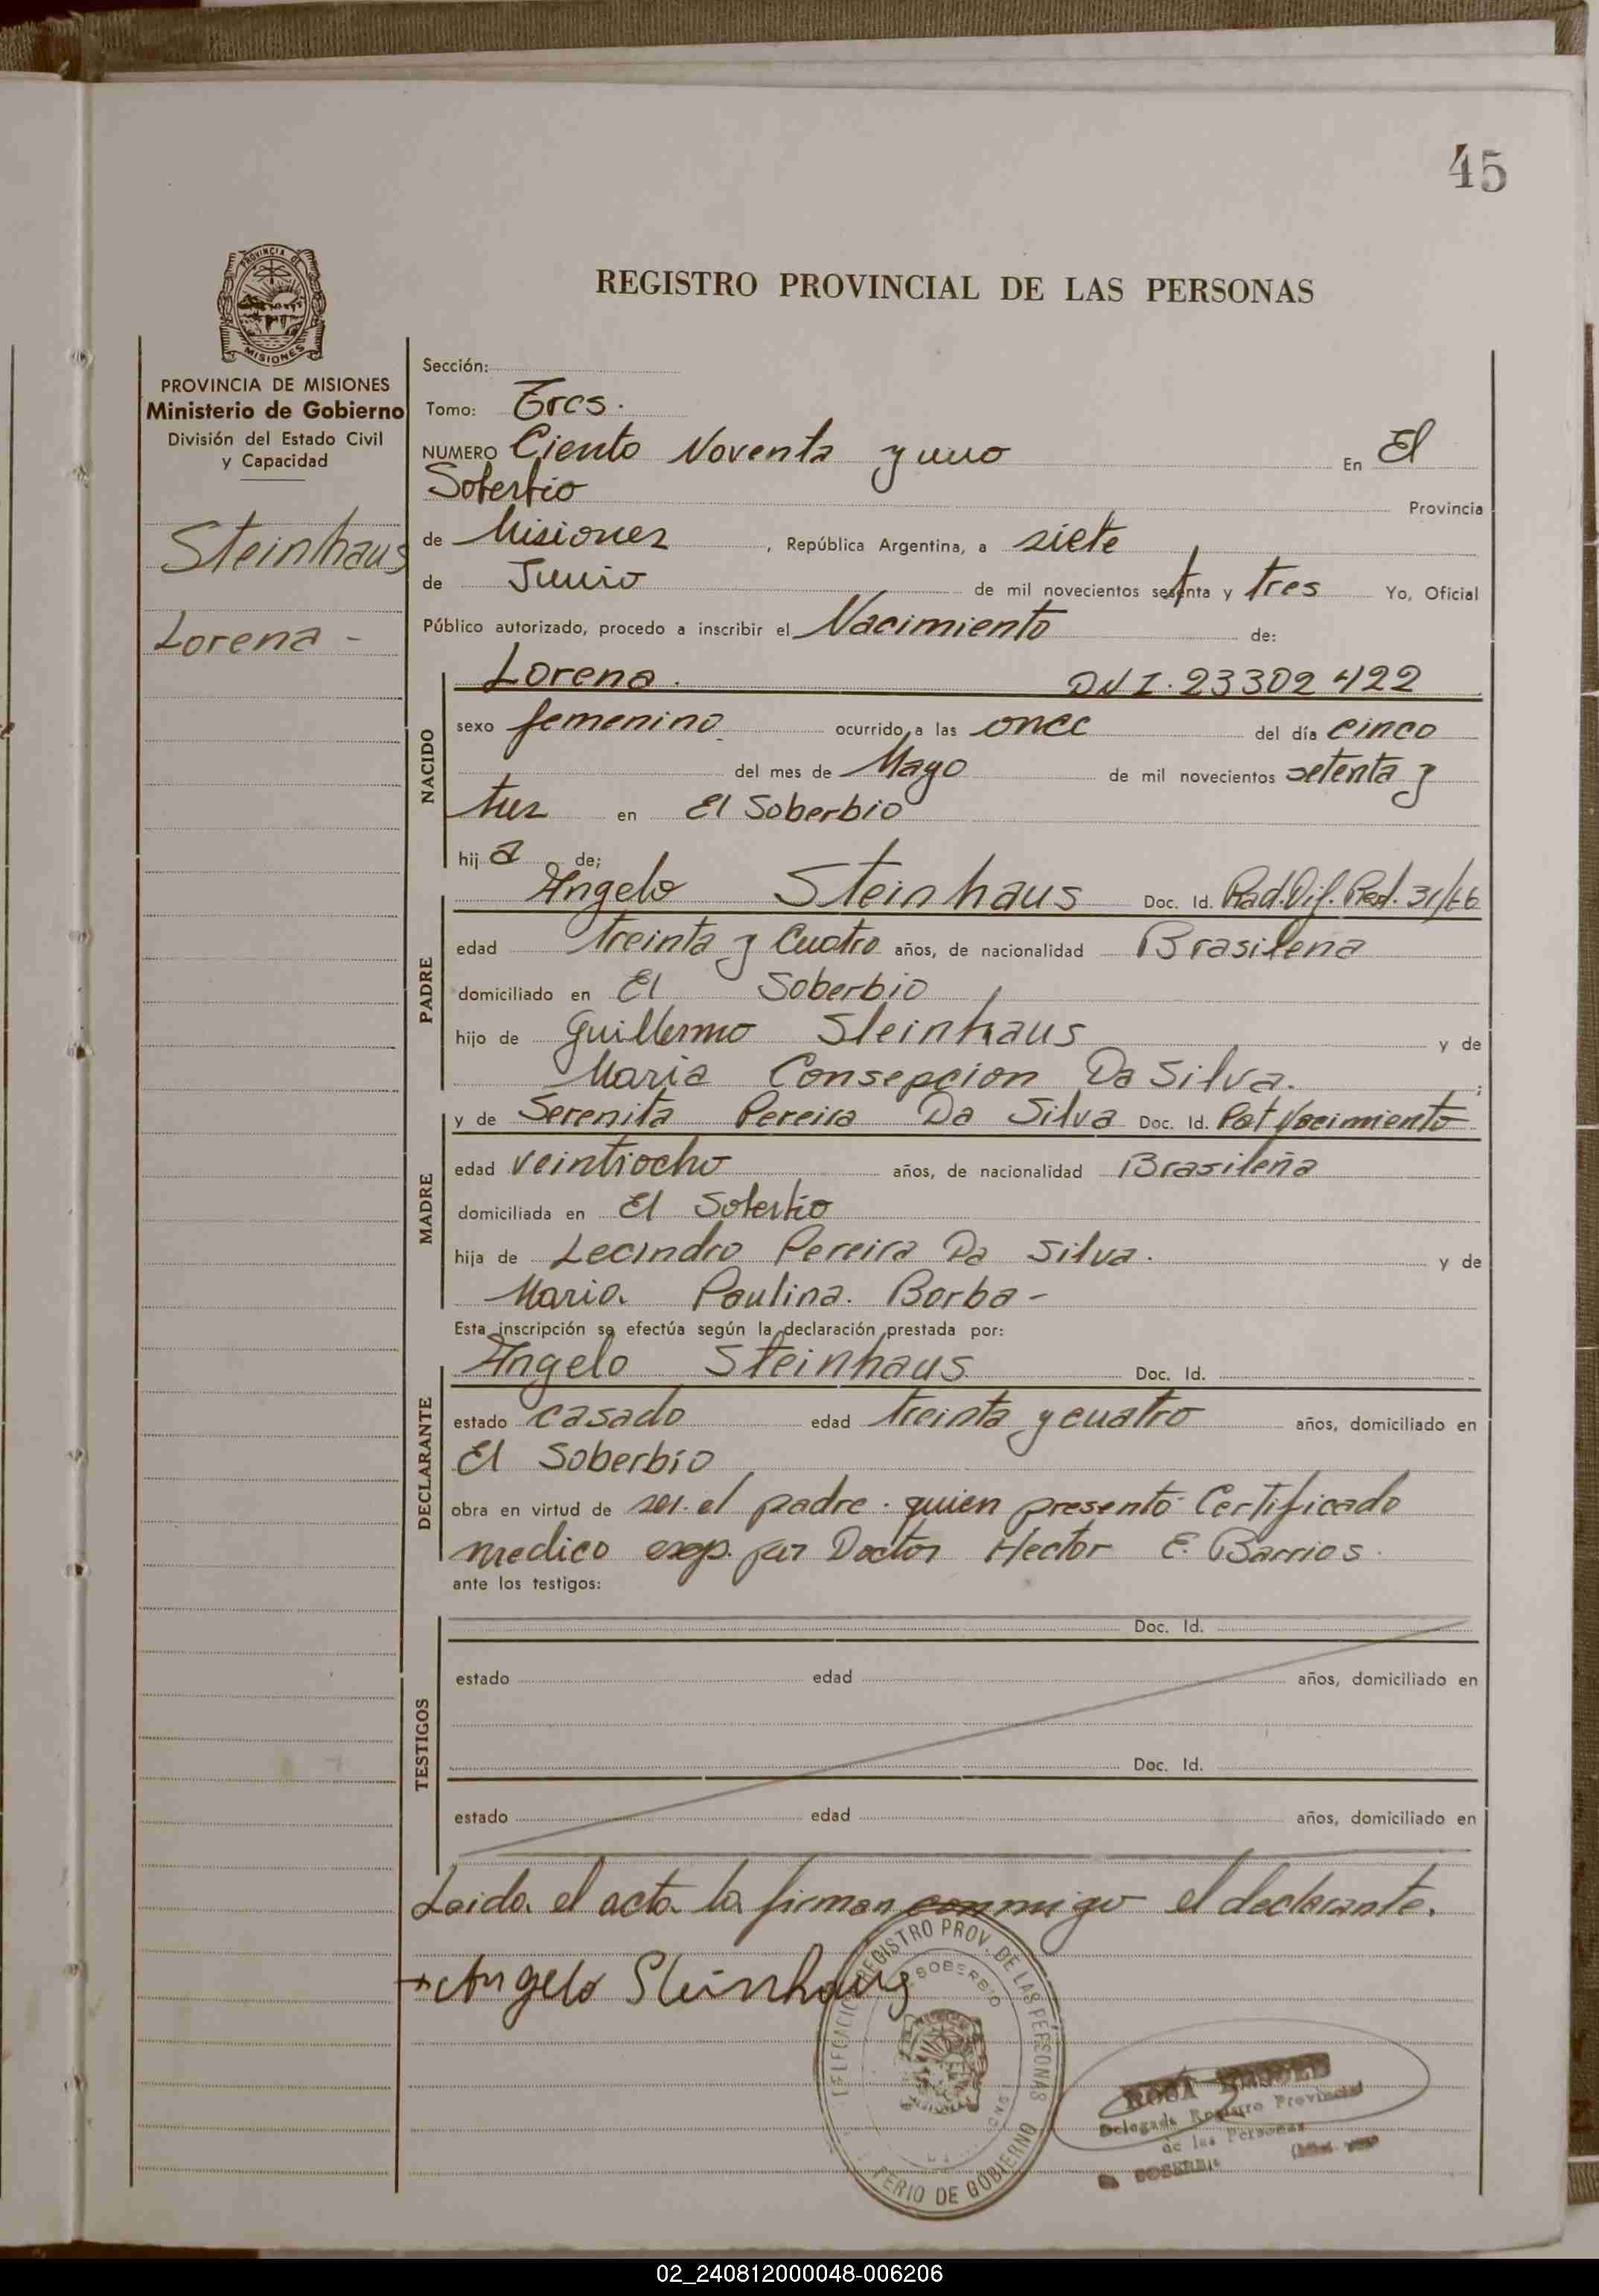 45
PROVINCIA DE
MISIONES
REGISTRO PROVINCIAL DE LAS PERSONAS
PROVINCIA DE MISIONES
Ministerio de Gobierno
División del Estado Civil
y Capacidad
Steinhaus
Lorena -
Sección:
Tomo: Tres.
NUMERO Ciento Noventa y uno En El
Soberbio Provincia
de Misiones, República Argentina, a siete
de Junio de mil novecientos setenta y tres Yo, Oficial
Público autorizado, procedo a inscribir el Nacimiento de:
NACIDO
Lorena. DNI. 23302422
sexo femenino ocurrido a las once del día cinco
del mes de Mayo de mil novecientos setenta y
tres en El Soberbio
hij a de;
PADRE
Angelo Steinhaus Doc. Id. Rad. Dif. Red. 31/66
edad treinta y Cuatro años, de nacionalidad Brasilena
domiciliado en El Soberbio
hijo de Guillermo Steinhaus y de
Maria Consepcion Da Silva. ;
MADRE
y de Serenita Pereira Da Silva Doc. Id. Pat Nacimiento
edad veintiocho años, de nacionalidad Brasileña
domiciliada en El Soberbio
hija de Lecindro Pereira Da Silva. y de
Maria. Paulina. Borba -
Esta inscripción se efectúa según la declaración prestada por:
DECLARANTE
Angelo Steinhaus Doc. Id.
estado casado edad treinta y cuatro años, domiciliado en
El Soberbio
obra en virtud de ser el padre. quien presentó Certificado
medico exp. por Doctor Hector E. Barrios.
ante los testigos:
TESTIGOS
Doc. Id.
estado edad años, domiciliado en
Doc. Id.
estado edad años, domiciliado en
Leida el acta la firman conmigo el declarante.
Angelo Steinhaus
REGISTRO PROV. DE LAS PERSONAS
SOBERBIO
DE GOBIERNO
ROSA
Delegada Registro Provincial
de las Personas
02_240812000048-006206